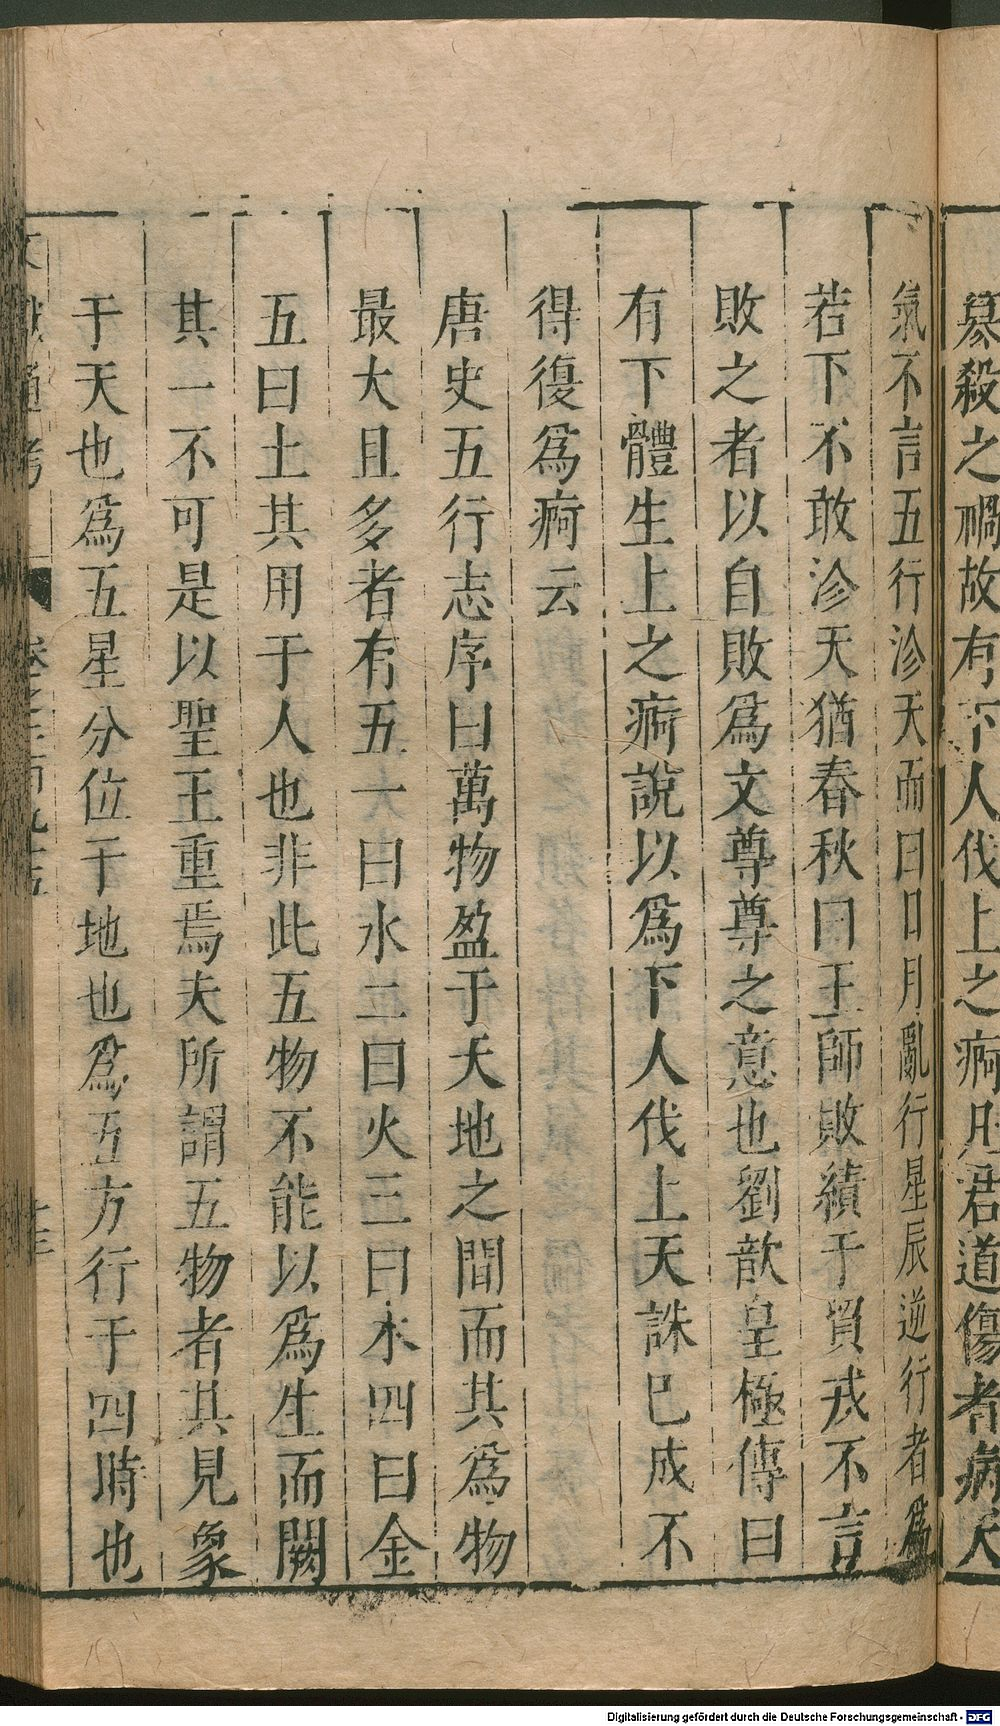 篡殺之禍故有下人伐上之痾凡君道傷者病天
氣不言五行沴天而曰日月亂行星辰逆行者爲
若下不敢沴天猶春秋曰王師敗績于貿戎不言
敗之者以自敗爲文尊尊之意也劉歆皇極傳曰
有下體生上之痾說以爲下人伐上天誅已成不
得復爲痾云
唐史五行志序曰萬物盈于天地之間而其爲物
最大且多者有五一曰水二曰火三曰木四曰金
五曰土其用于人也非此五物不能以爲生而闕
其一不可是以聖王重焉夫所謂五物者其見象
于天也爲五星分位于地也爲五方行于四時也
Digitalisierung gefördert durch die Deutsche Forschungsgemeinschaft - DFG